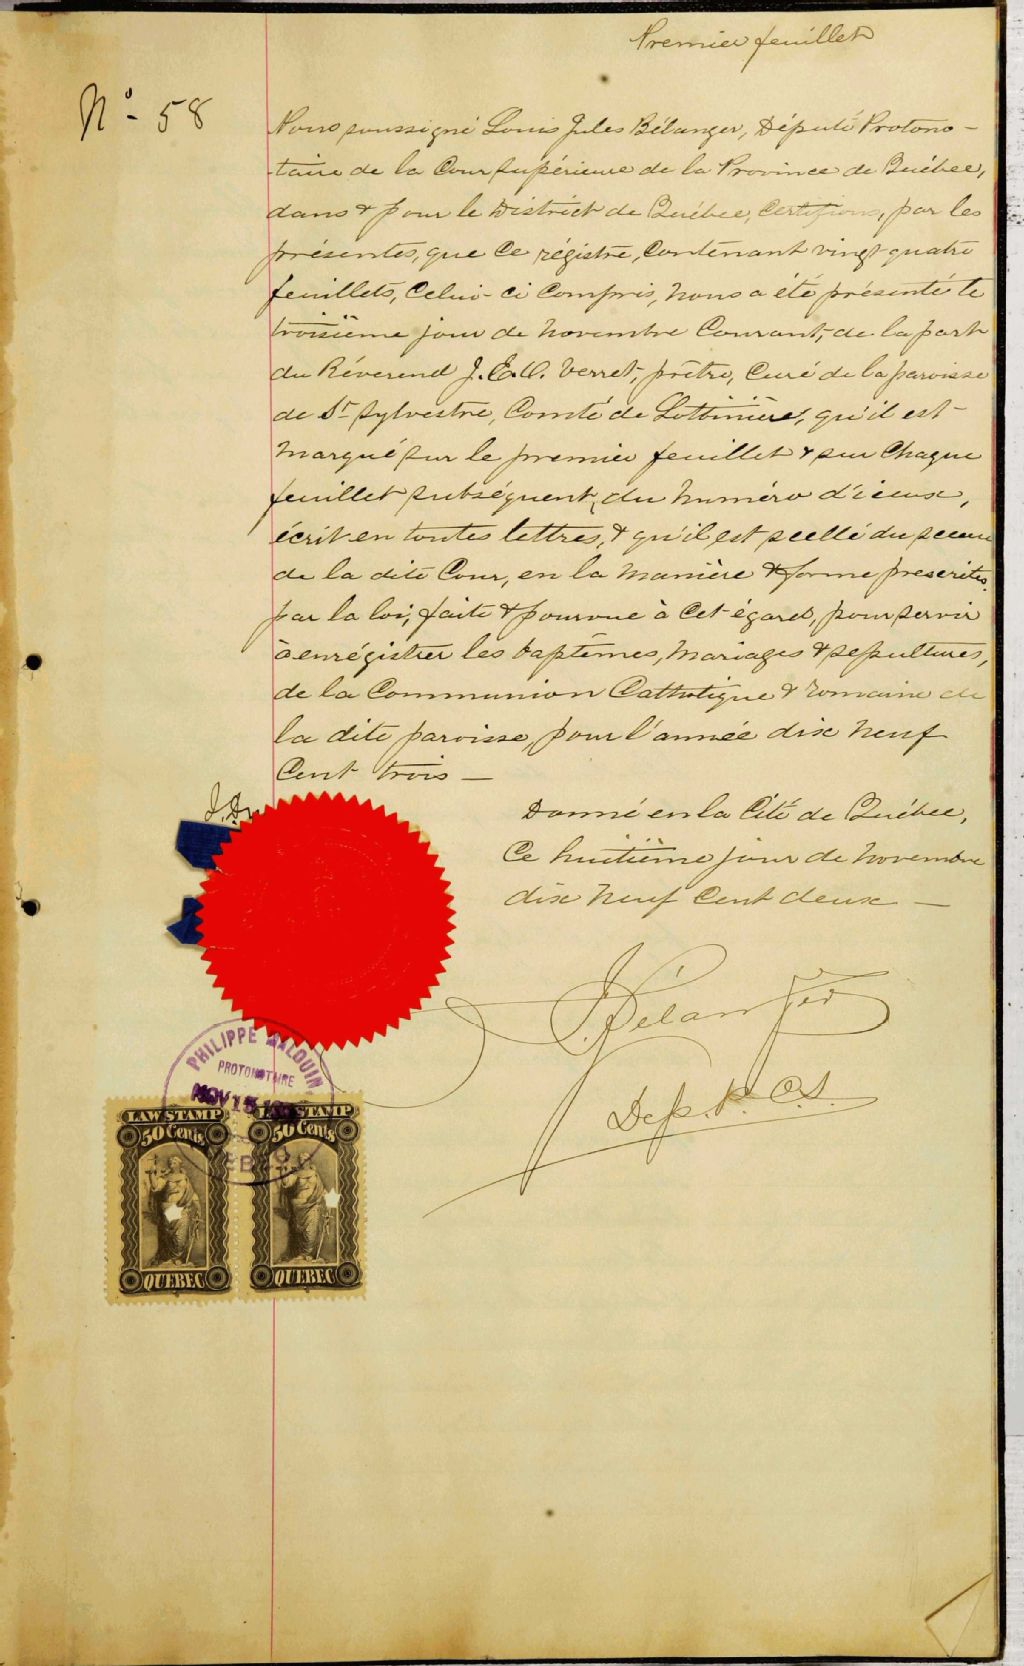 Premier feuillet
No - 58
Nous soussigné Louis Jules Bélanger, Député Protono-
taire de la Cour Supérieure de la Province de Québec,
dans & pour le District de Québec, Certifions, par les
présentes, que ce régistre, contenant vingt quatre
feuillets, Celui-ci Compris, nous a été présenté le
troisième jour de novembre Courant, de la part
du Révérend J.E.O. Verret, prêtre, Curé de la paroisse
de St Sylvestre, Comté de Lotbinière, qu'il est
marqué sur le premier feuillet & sur Chaque
feuillet subséquent, du numéro d'iceux,
écrit en toutes lettres, & qu'il est scellé du sceau
de la dite Cour, en la manière & forme prescrites
par la loi, faite & pourvue à cet égard, pour servir
à enrégistrer les baptêmes, mariages & sépultures,
de la Communion Catholique & romaine de
la dite paroisse, pour l'année dix neuf
Cent trois —
Donné en la Cité de Québec,
Ce huitième jour de novembre
dix neuf Cent deux —
J. Bélanger
Dep. P. C. S.
PHILIPPE MALOUIN
PROTONOTAIRE
NOV 15
LAW STAMP
50 Cents
QUEBEC
LAW STAMP
50 Cents
QUEBEC